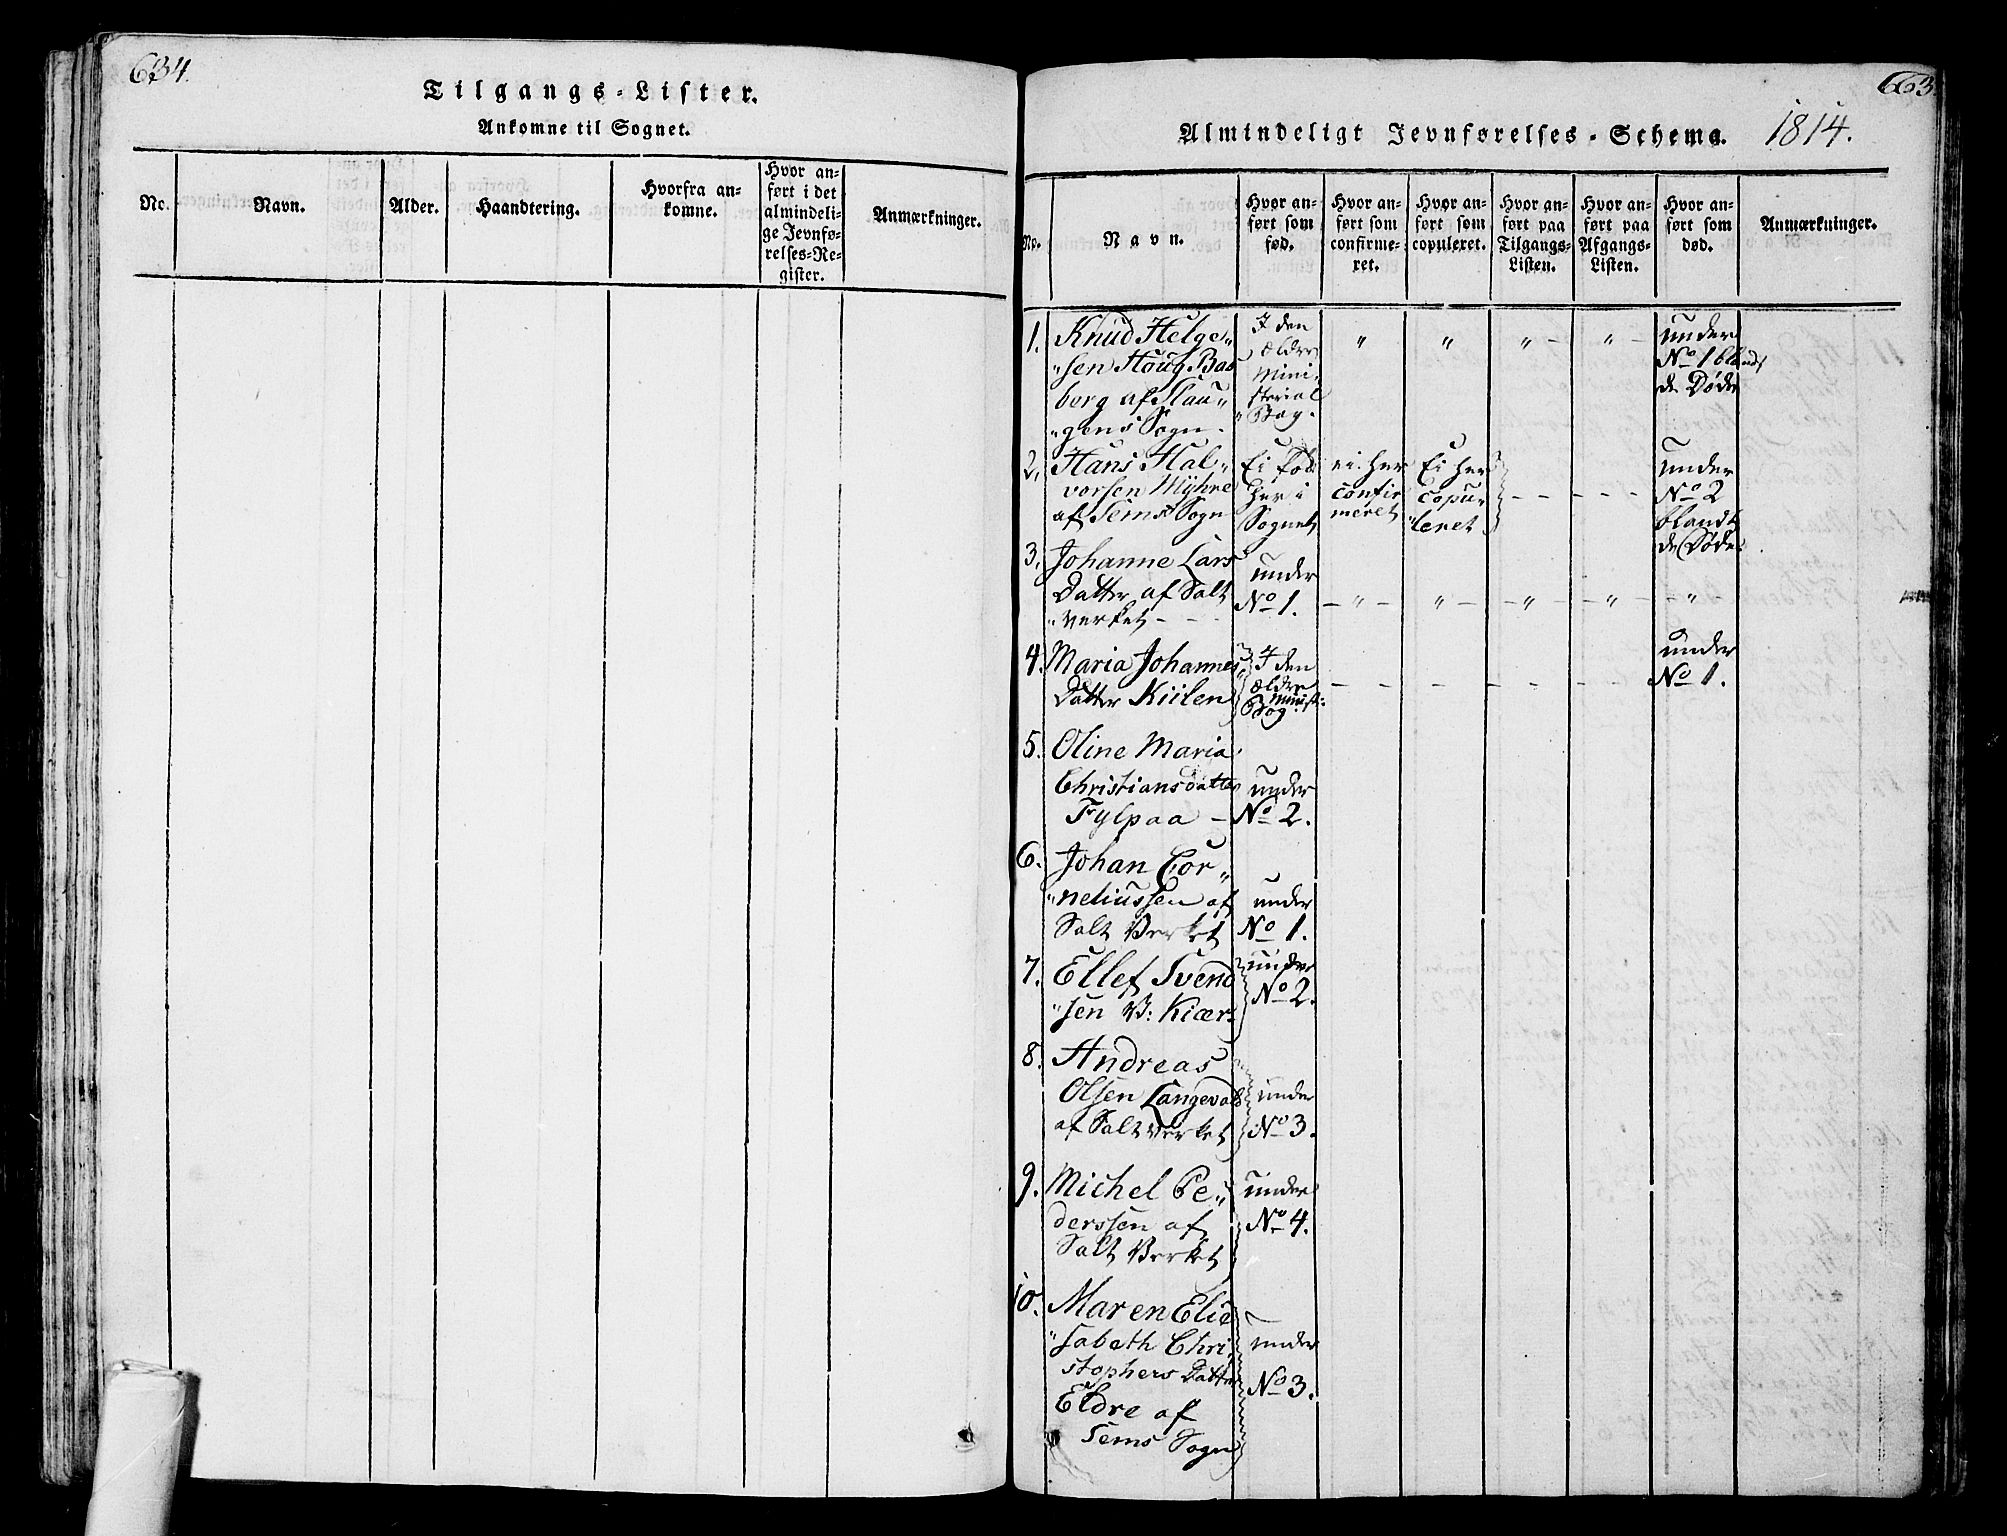 634.
Tilgangs-Lister.
Ankomne til Sognet.
No.
Navn.
Alder.
Haandtering.
Hvorfra an-
komne.
Hvor an-
ført i det
almindeli-
ge Jevnfø-
relses-Re-
gister.
Anmærkninger.
663.
Almindeligt Jevnførelses-Schema. 1814.
No.
Navn.
Hvor an-
ført som
fød.
Hvor an-
ført som
confirme-
ret.
Hvor an-
ført som
copuleret.
Hvor an-
ført paa
Tilgangs-
Listen.
Hvor an-
ført paa
Afgangs-
Listen.
Hvor an-
ført som
død.
Anmærkninger.
1. Knud Helge„
„sen Houg Bas
berg af Slau„
„gens Sogn.
I den
ældre
Mini„
sterial
„ Bog.
„ „ „ – „ –
under
No 1 blandt
de Døde
2. Hans Hal„
vorsen Myhre
af Sems Sogn
Ei fød
her i
Sognet
ei her
confir
meret
Ei her
copu„
„leret
– – – – –
under
No 2
blandt
de Døde
3. Johanne Lars
Datter af Salt
„verket – – –
under
No 1.
– „ – „ – – „ – – „ – – „ –
4. Maria Johannes
Datter Kiilen
I den
ældre
Minist:
Bog
– – – – – – – –
under
No 1.
5. Oline Maria
Christiansdatter
Fylpaa –
under
No 2.
6. Johan Cor„
„neliussen af
Salt Verket
under
No 1.
7. Ellef Svend
„sen V: Kiær:
under
No 2.
8. Andreas
Olsen Langevald
af Saltverket
under
No 3.
9. Michel Pe„
derssen af
Salt Verket
under
No 4.
10. Maren Elie
„sabeth Chri
stophers Datter
Eldre af
Sems Sogn
under
No 3.